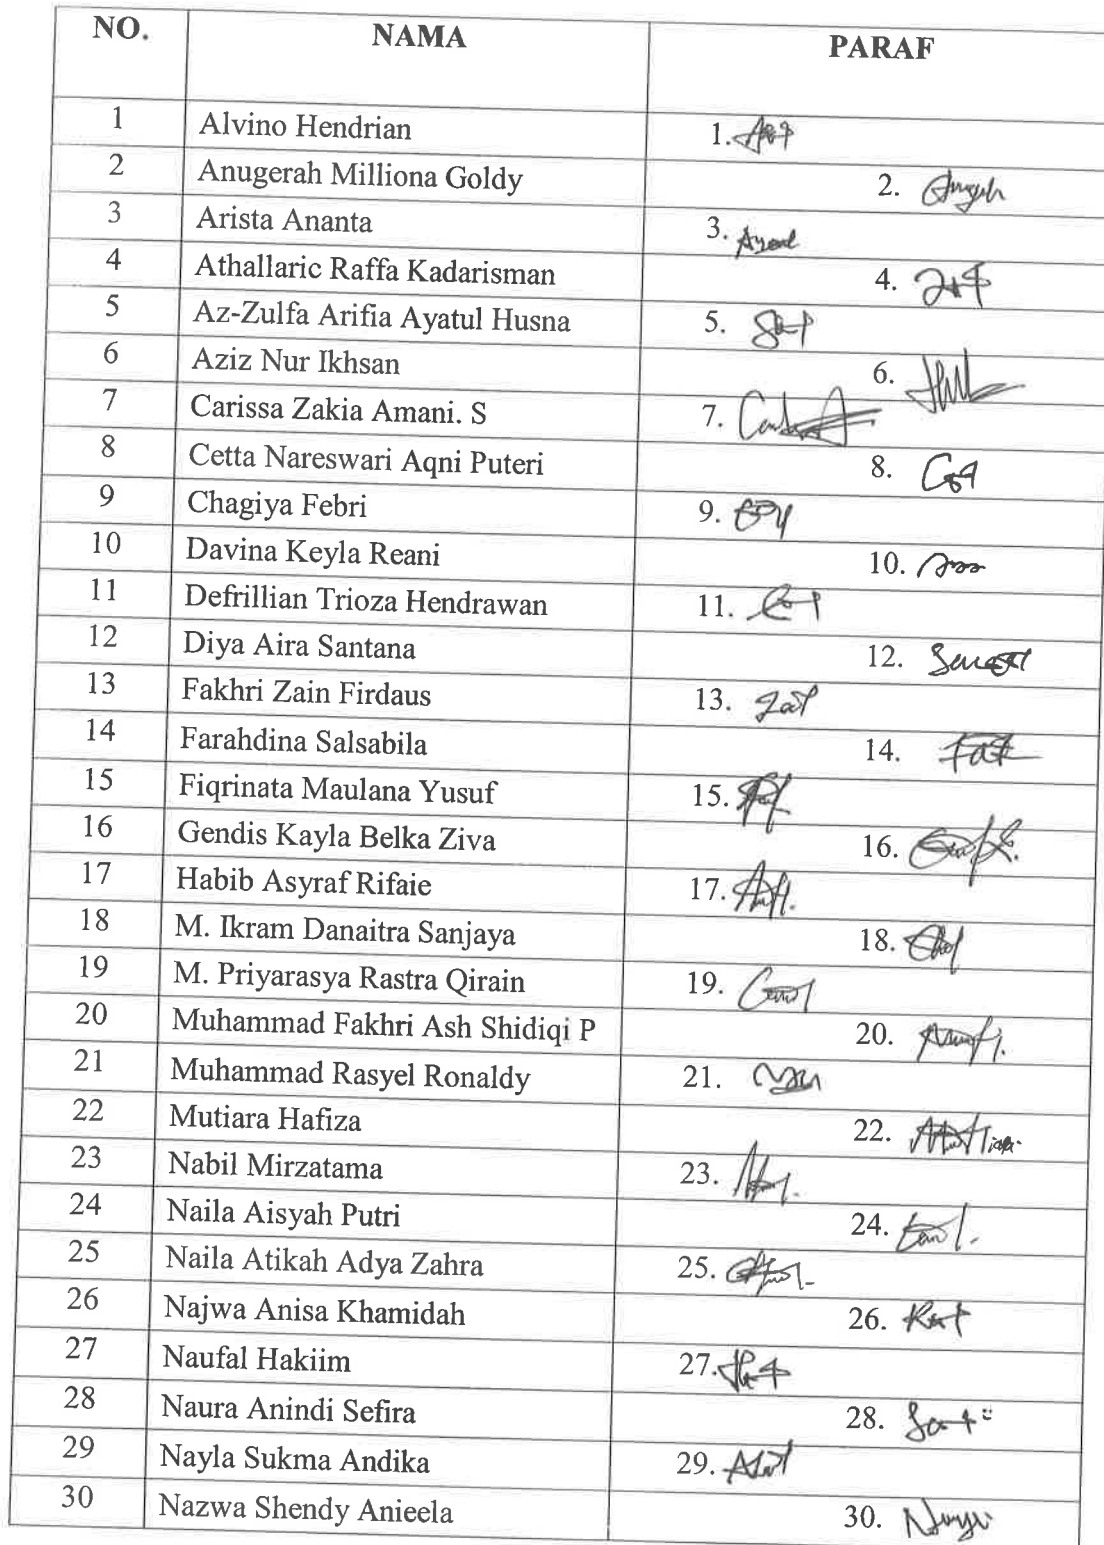 NO. NAMA PARAF
1 Alvino Hendrian 1.
2 Anugerah Milliona Goldy 2.
3 Arista Ananta 3.
4 Athallaric Raffa Kadarisman 4.
5 Az-Zulfa Arifia Ayatul Husna 5.
6 Aziz Nur Ikhsan 6.
7 Carissa Zakia Amani. S 7.
8 Cetta Nareswari Aqni Puteri 8.
9 Chagiya Febri 9.
10 Davina Keyla Reani 10.
11 Defrillian Trioza Hendrawan 11.
12 Diya Aira Santana 12.
13 Fakhri Zain Firdaus 13.
14 Farahdina Salsabila 14.
15 Fiqrinata Maulana Yusuf 15.
16 Gendis Kayla Belka Ziva 16.
17 Habib Asyraf Rifaie 17.
18 M. Ikram Danaitra Sanjaya 18.
19 M. Priyarasya Rastra Qirain 19.
20 Muhammad Fakhri Ash Shidiqi P 20.
21 Muhammad Rasyel Ronaldy 21.
22 Mutiara Hafiza 22.
23 Nabil Mirzatama 23.
24 Naila Aisyah Putri 24.
25 Naila Atikah Adya Zahra 25.
26 Najwa Anisa Khamidah 26.
27 Naufal Hakiim 27.
28 Naura Anindi Sefira 28.
29 Nayla Sukma Andika 29.
30 Nazwa Shendy Anieela 30.